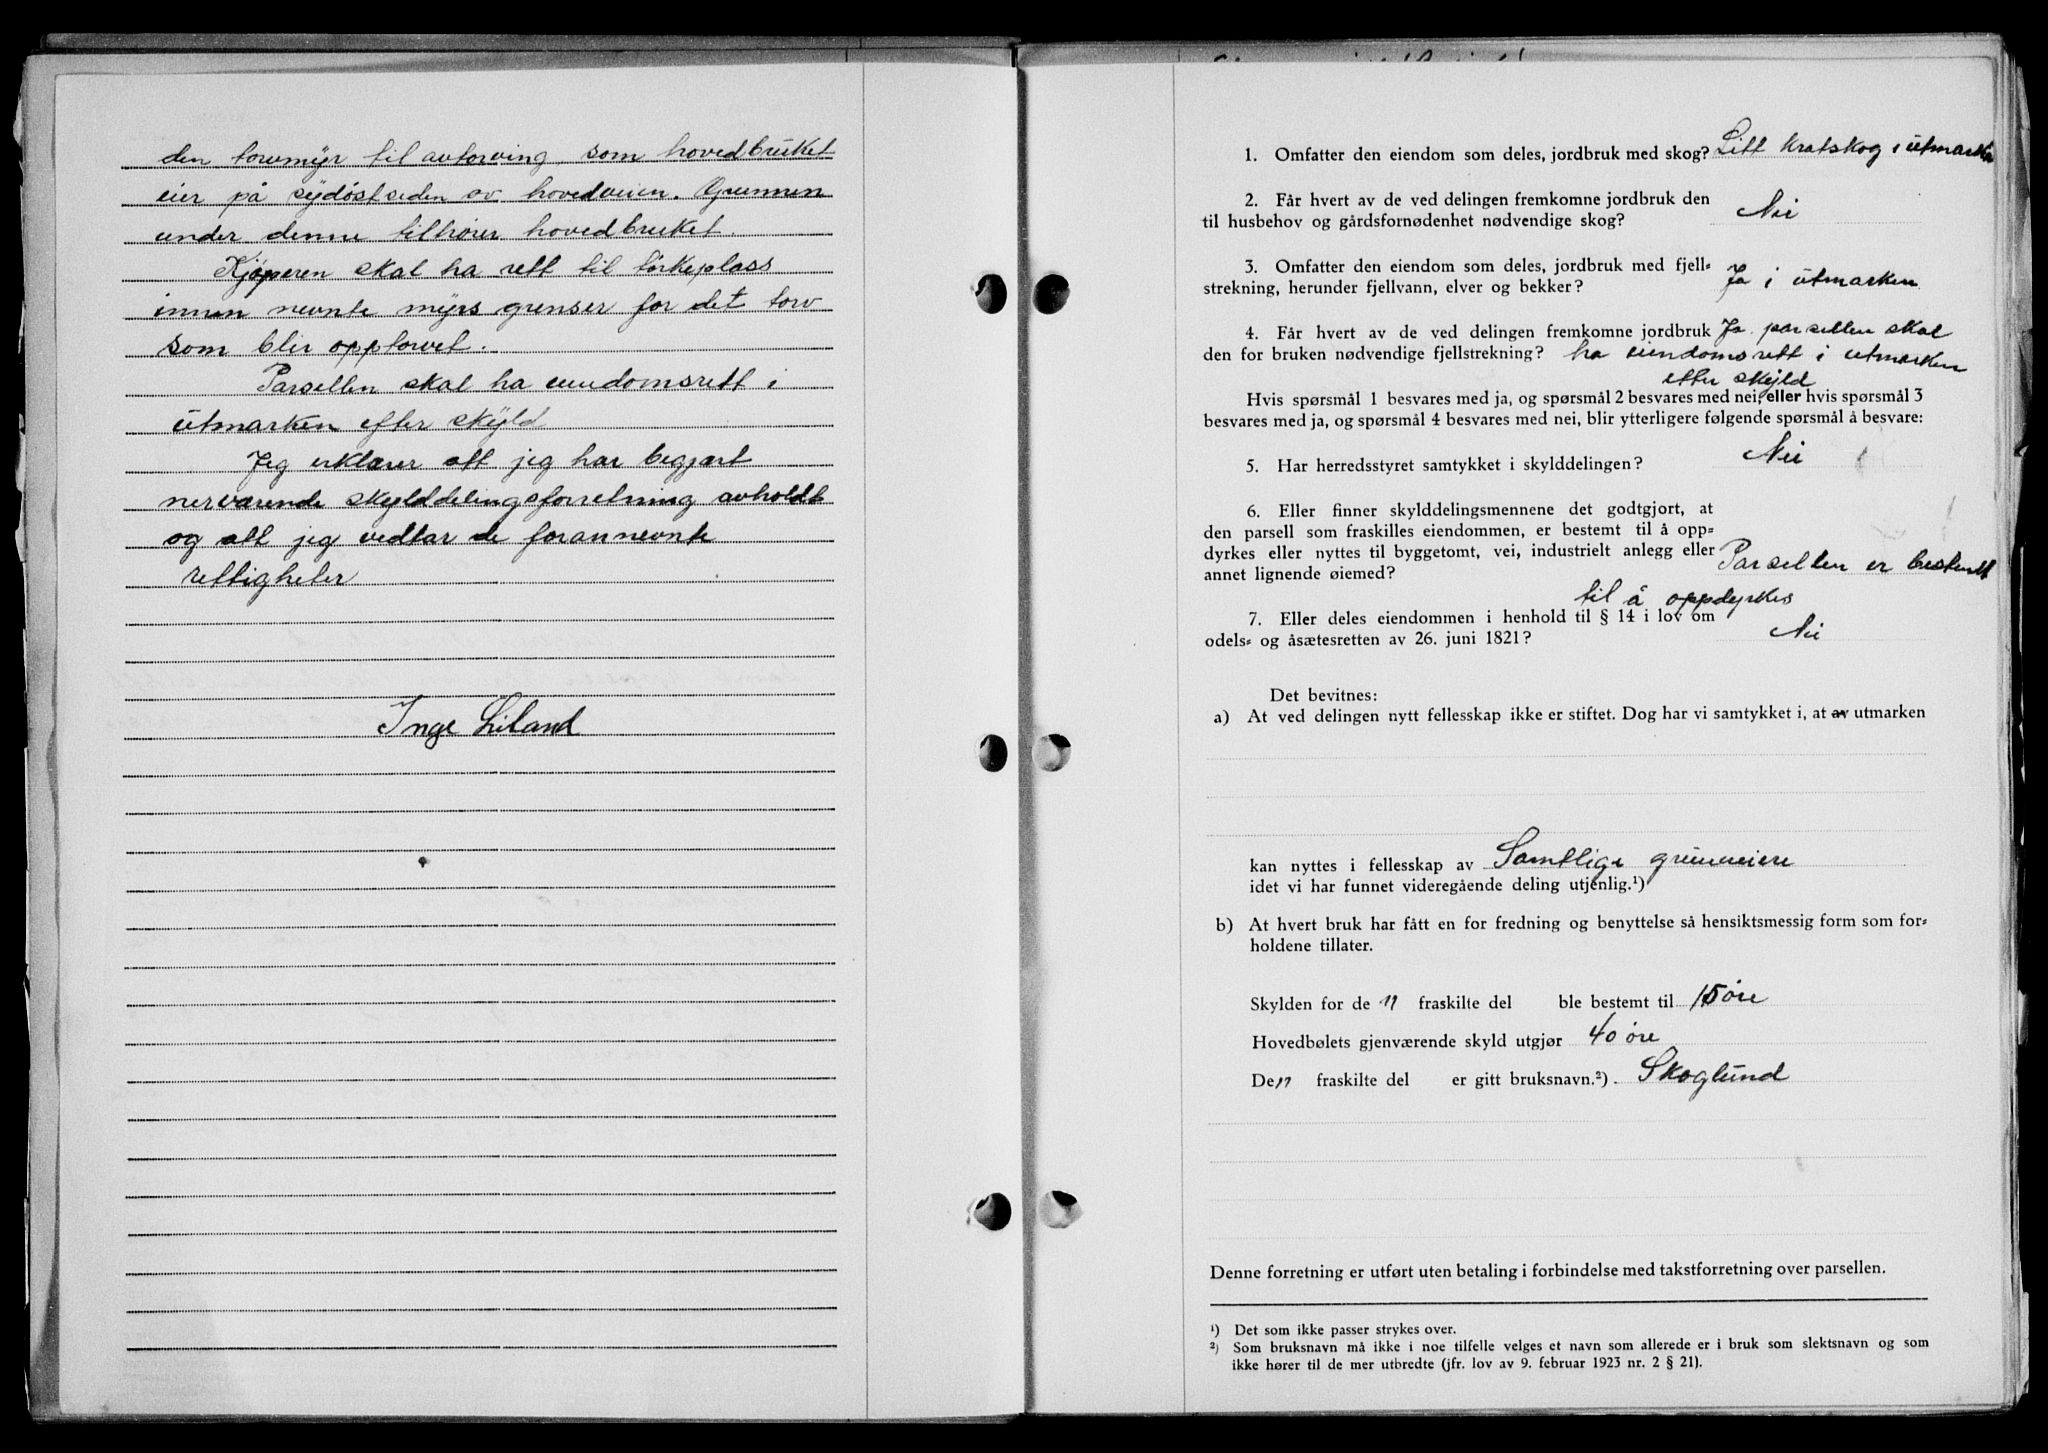 den torvmyr til avtorving som hovedbruket
eier på sydøstsiden av hovedveien. Grunnen
under denne tilhører hovedbruket.
Kjøperen skal ha rett til tørkeplass
innen nevnte myrs grenser for det torv
som blir opptorvet.
Parsellen skal ha eiendomsrett i
utmarken efter skyld
Jeg erklærer att jeg har begjært
nerværende skylddelingsforretning avholdt
og att jeg vedtar de forannevnte
rettigheter
Inge Liland
1. Omfatter den eiendom som deles, jordbruk med skog? Litt kratskog i utmarka
2. Får hvert av de ved delingen fremkomne jordbruk den
til husbehov og gårdsfornødenhet nødvendige skog? Nei
3. Omfatter den eiendom som deles, jordbruk med fjell=
strekning, herunder fjellvann, elver og bekker? Ja i utmarken
4. Får hvert av de ved delingen fremkomne jordbruk Ja parsellen skal
den for bruken nødvendige fjellstrekning? ha eiendomsrett i utmarken
etter skyld
Hvis spørsmål 1 besvares med ja, og spørsmål 2 besvares med nei, eller hvis spørsmål 3
besvares med ja, og spørsmål 4 besvares med nei, blir ytterligere følgende spørsmål å besvare:
5. Har herredsstyret samtykket i skylddelingen? Nei
6. Eller finner skylddelingsmennene det godtgjort, at
den parsell som fraskilles eiendommen, er bestemt til å opp=
dyrkes eller nyttes til byggetomt, vei, industrielt anlegg eller
annet lignende øiemed? Parsellen er bestemt
til å oppdyrkes
7. Eller deles eiendommen i henhold til § 14 i lov om
odels= og åsætesretten av 26. juni 1821? Nei
Det bevitnes:
a) At ved delingen nytt fellesskap ikke er stiftet. Dog har vi samtykket i, at av utmarken
kan nyttes i fellesskap av Samtlige grunneiere
idet vi har funnet videregående deling utjenlig.¹)
b) At hvert bruk har fått en for fredning og benyttelse så hensiktsmessig form som for=
holdene tillater.
Skylden for de n fraskilte del ble bestemt til 15 øre
Hovedbølets gjenværende skyld utgjør 40 øre
De n fraskilte del er gitt bruksnavn.²) Skoglund
Denne forretning er utført uten betaling i forbindelse med takstforretning over parsellen.
¹) Det som ikke passer strykes over.
²) Som bruksnavn må ikke i noe tilfelle velges et navn som allerede er i bruk som slektsnavn og som
ikke hører til de mer utbredte (jfr. lov av 9. februar 1923 nr. 2 § 21).